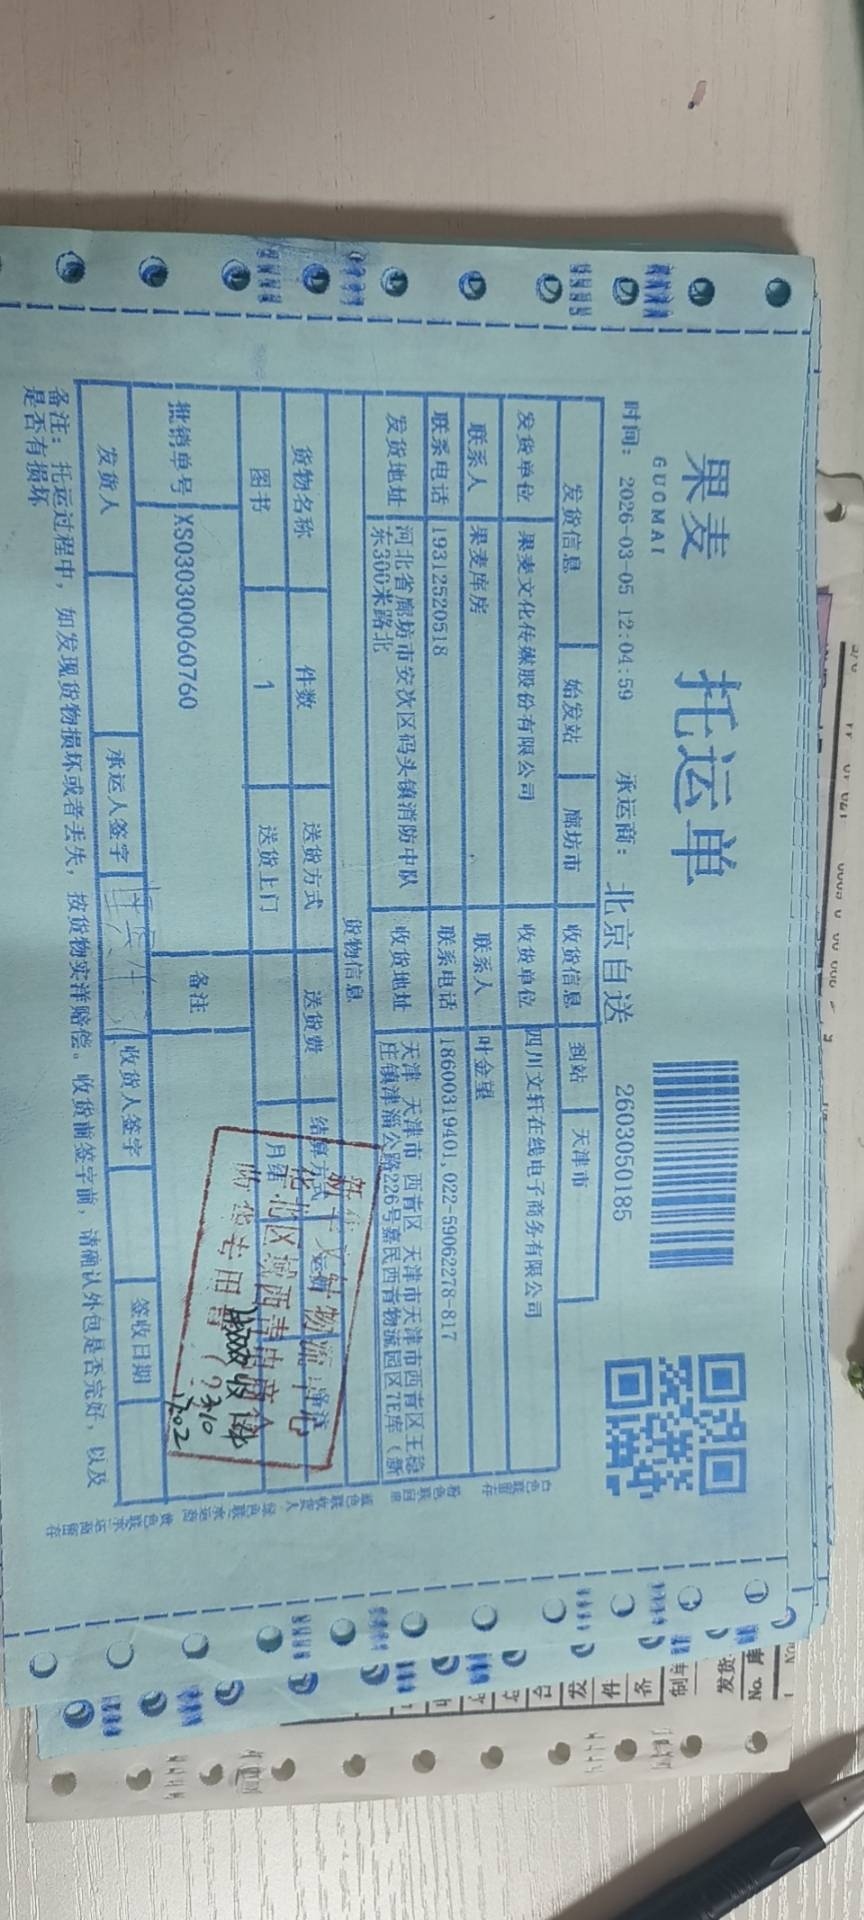 果麦
GUOMAI
托运单
时间: 2026-03-05 12:04:59 承运商: 北京自送 2603050185
发货信息 始发站 廊坊市 收货信息 到站 天津市
发货单位 果麦文化传媒股份有限公司 收货单位 四川文轩在线电子商务有限公司
联系人 果麦库房 联系人 叶金望
联系电话 19312520518 联系电话 18600319401,022-59062278-817
发货地址 河北省廊坊市安次区码头镇消防中队 收货地址 天津 天津市 西青区 天津市天津市西青区王稳
东300米路北 庄镇津淄公路226号嘉民西青物流园区7E库(新
货物信息
货物名称 件数 送货方式 送货费 结算方式
图书 1 送货上门 月结
批销单号 XS030300060760 备注
发货人 承运人签字 收货人签字 签收日期
备注: 托运过程中, 如发现货物损坏或者丢失, 按货物实洋赔偿。收货前签字前, 请确认外包是否完好, 以及
是否有损坏
白色联留存 粉色联回单 蓝色联收货人 绿色联承运商 黄色联承运商留存